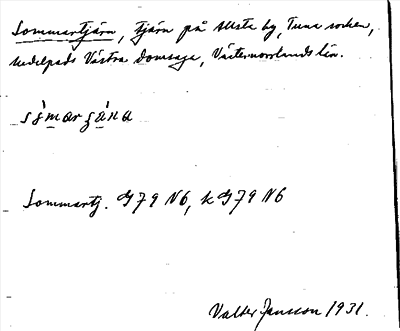 Sommartjärn, tjärn på Allsta by, Tuna socken,
Medelpads Västra domsaga, Västernorrlands län.
Sommartj. G79 N6, k G79 N6
Valter Jansson 1931.